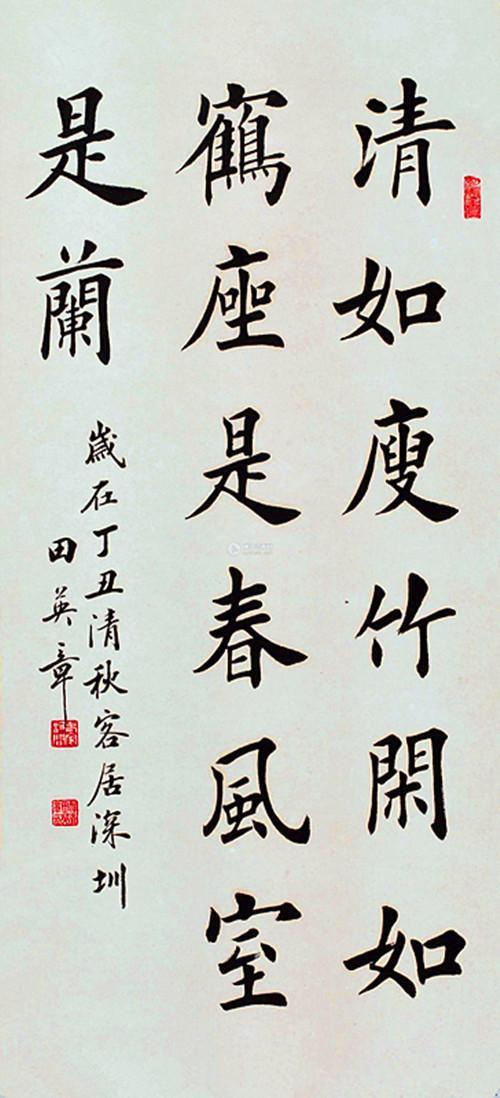 清如廋竹閑如
鶴座是春風室
是蘭
歲在丁丑清秋客居深圳
田英章